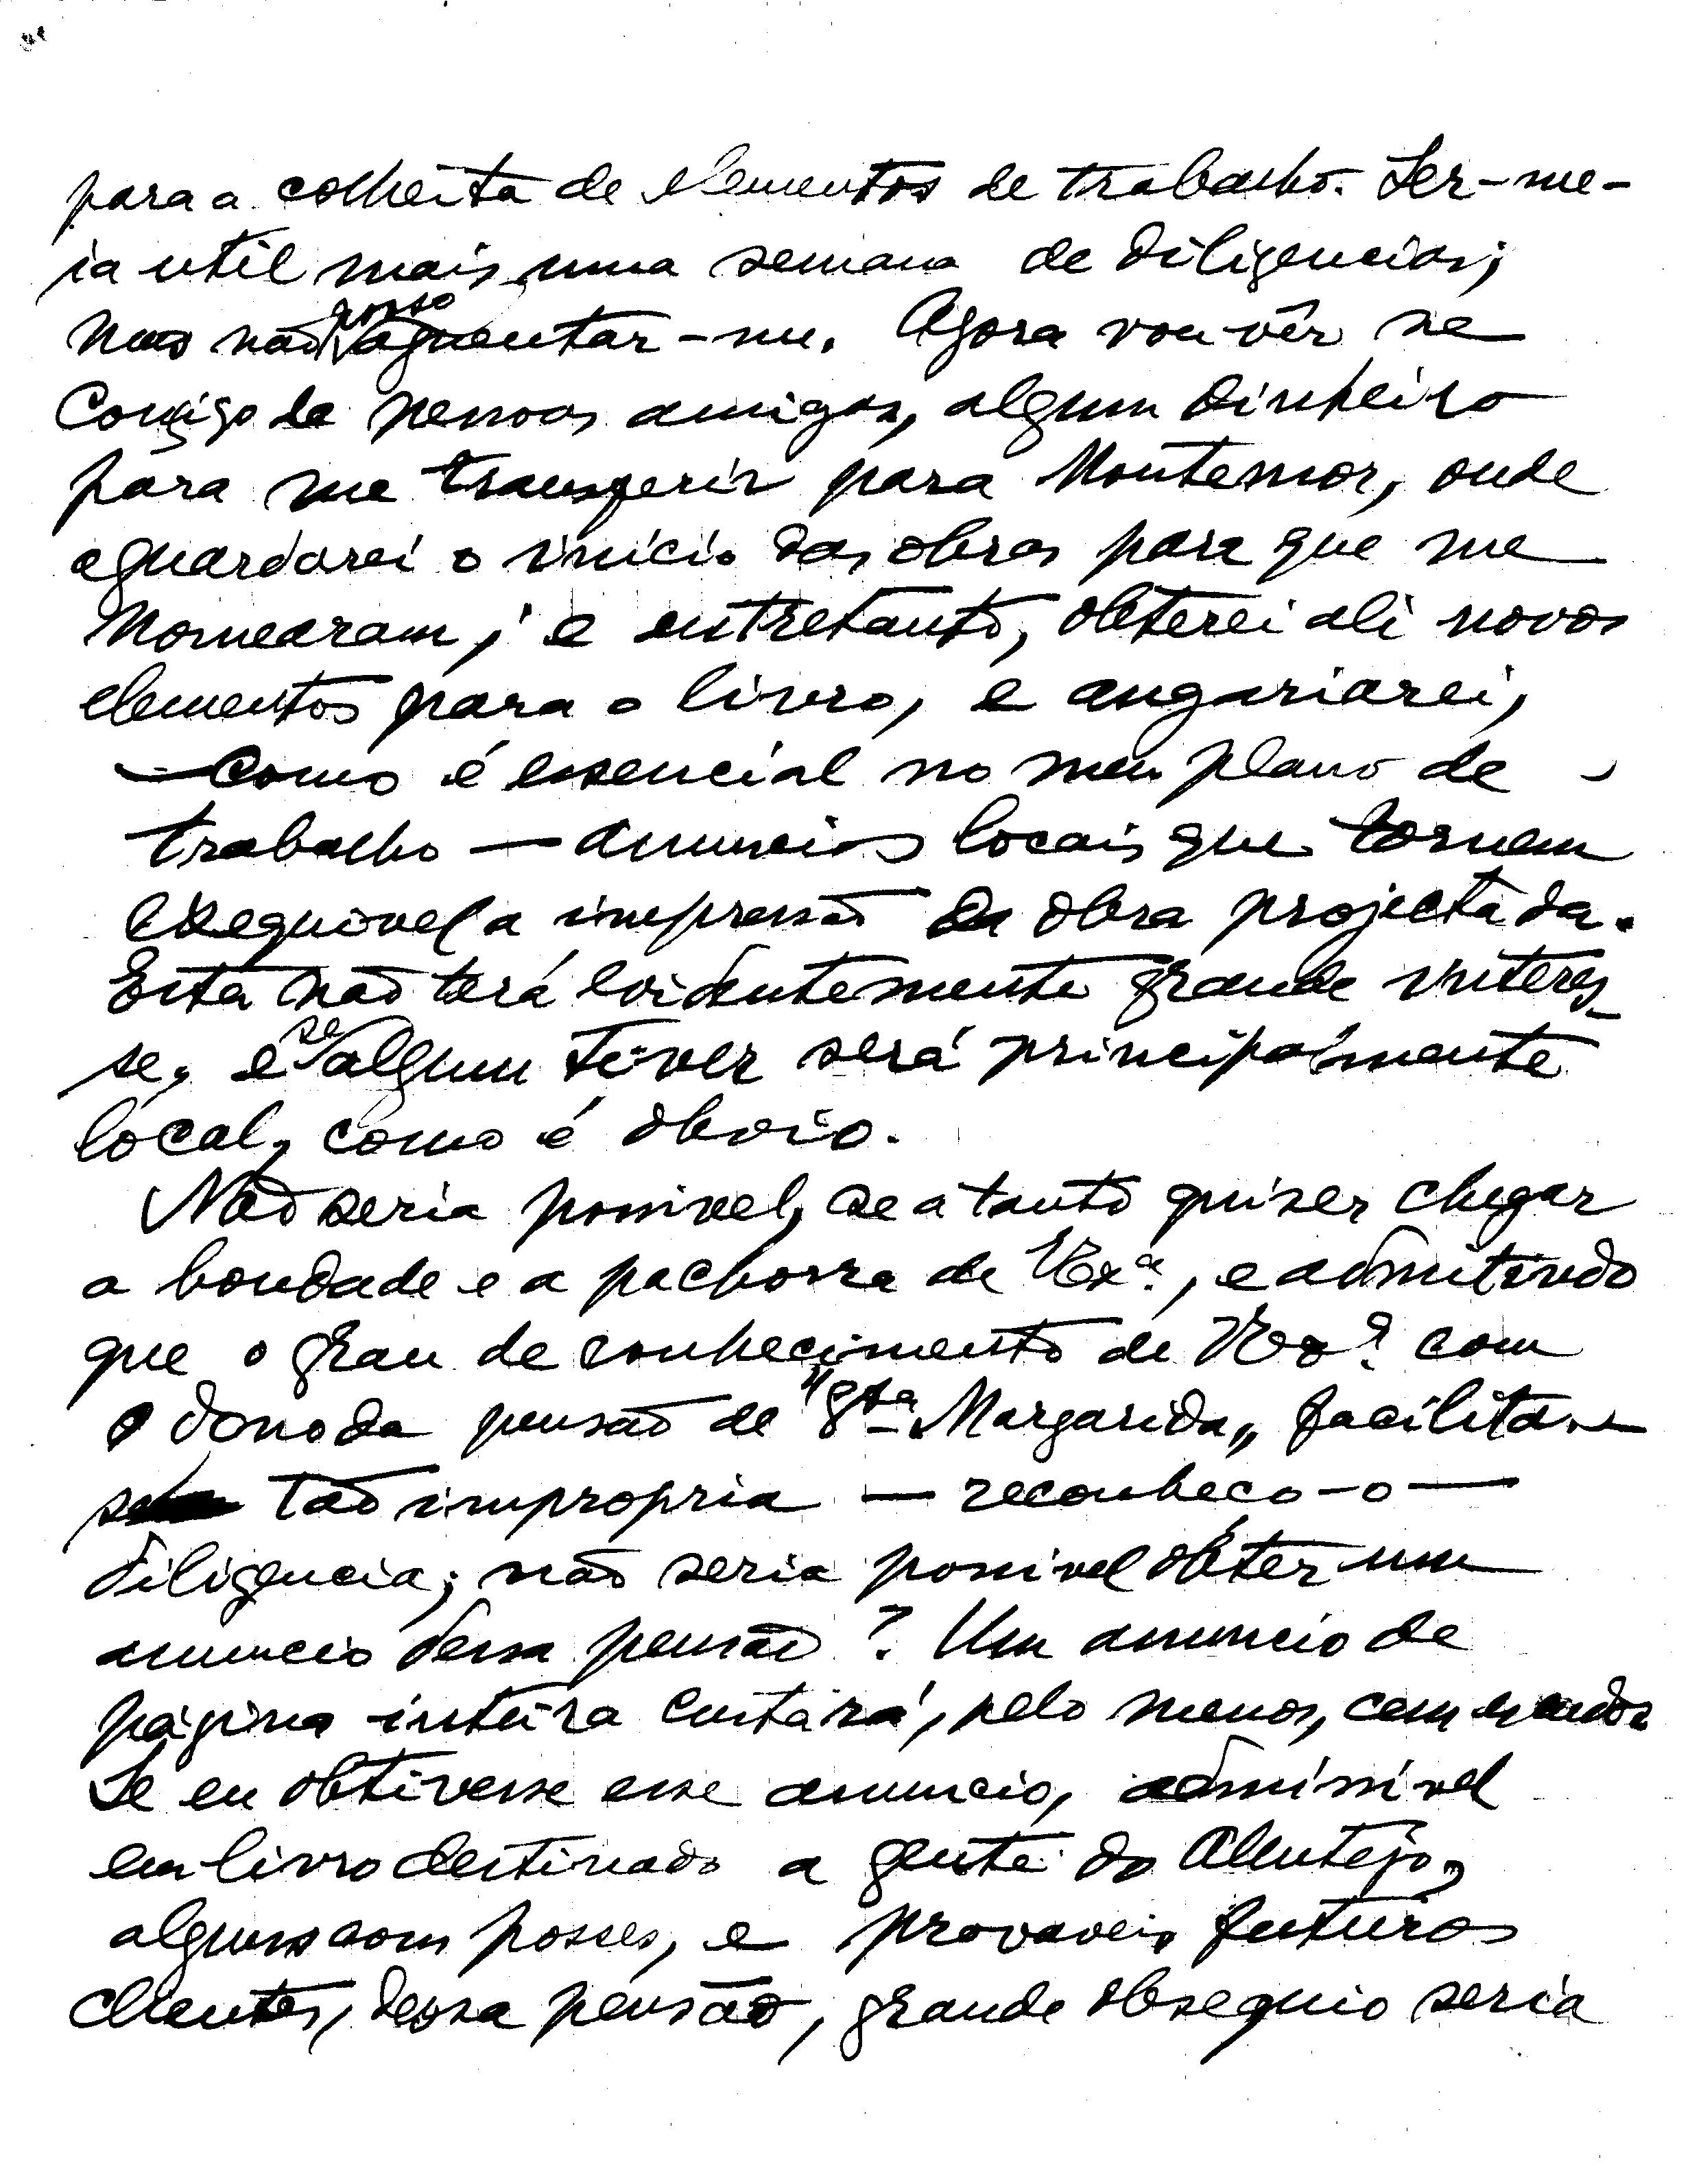 para a colheita de elementos de trabalho. Ser-me-
ia util mais uma semana de diligencias;
mas não posso aguentar-me. Agora vou vêr se
consigo de pessoas amigas, algum dinheiro
para me transferir para Montemor, onde
aguardarei o inicio das obras para que me
nomearam; e entretanto, obterei ali novos
elementos para o livro, e angariarei,
— como é essencial no meu plano de
trabalho — anuncios locais que tornem
exequivel a impressão da obra projectada.
Esta não terá evidentemente grande interes-
se, e se algum tiver será principalmente
local, como é obvio.
Não seria possivel, se a tanto quiser chegar
a bondade e a pachorra de V. Exª., e admitindo
que o grau de conhecimento de V. Exª. com
o dono da pensão de "Stª Margarida", facilita
tão impropria — reconheço-o —
diligencia; não seria possivel obter um
anuncio dessa pensão? Um anuncio de
página inteira custará, pelo menos, cem escudos
Se eu obtivesse esse anuncio, admissivel
em livro destinado a gente do Alentejo,
alguns com posses, e provaveis futuros
clientes, dessa pensão, grande obsequio seria